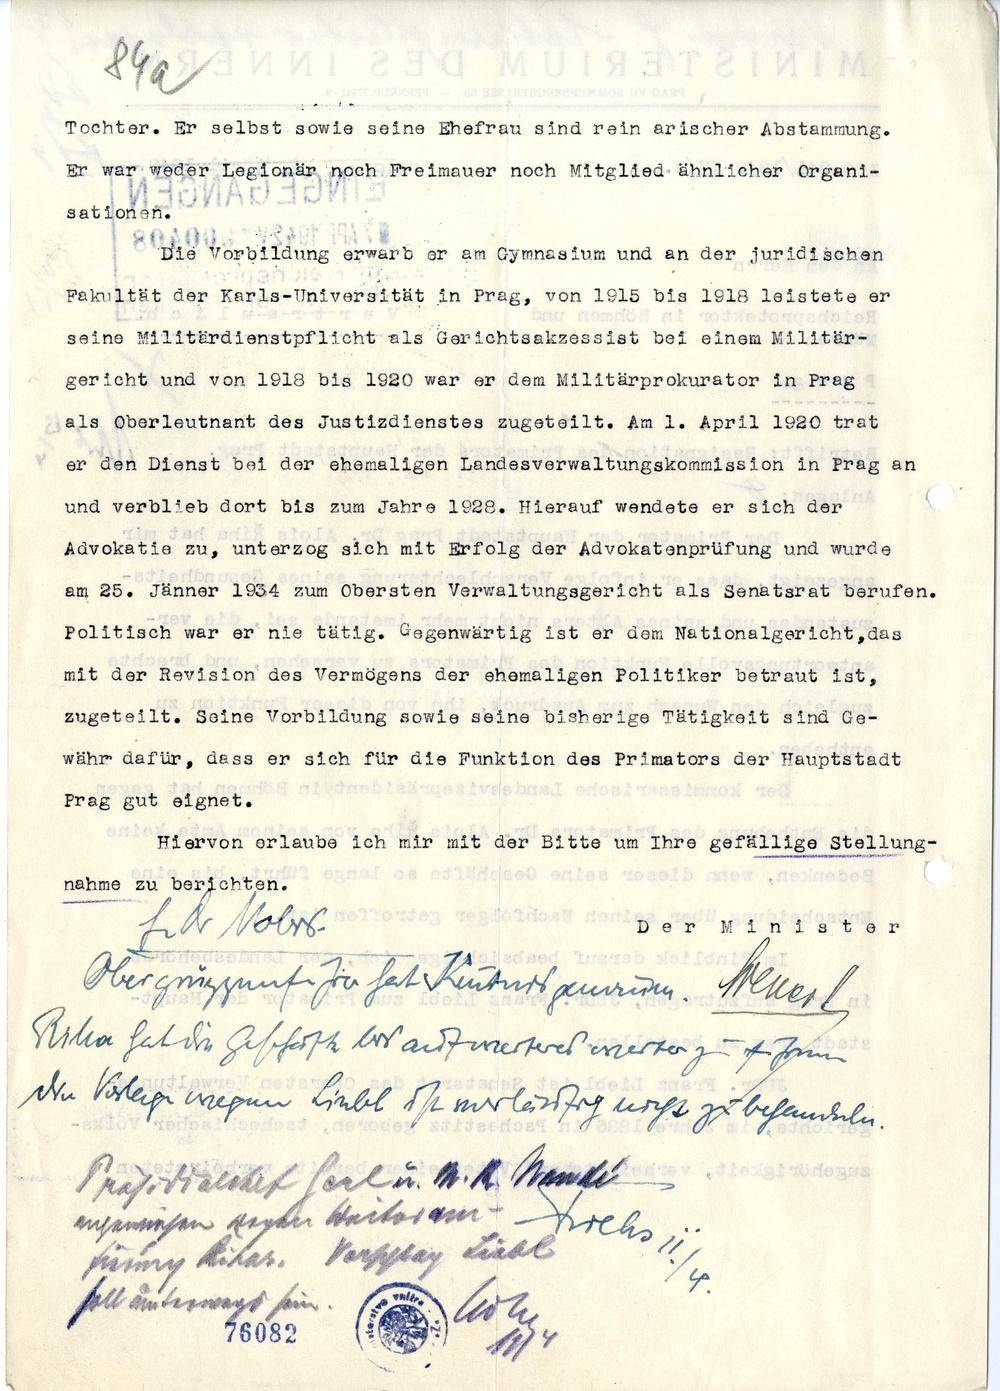 84a
Tochter. Er selbst sowie seine Ehefrau sind rein arischer Abstammung.
Er war weder Legionär noch Freimauer noch Mitglied ähnlicher Organi-
sationen.
Die Vorbildung erwarb er am Gymnasium und an der juridischen
Fakultät der Karls-Universität in Prag, von 1915 bis 1918 leistete er
seine Militärdienstpflicht als Gerichtsakzessist bei einem Militär-
gericht und von 1918 bis 1920 war er dem Militärprokurator in Prag
als Oberleutnant des Justizdienstes zugeteilt. Am 1. April 1920 trat
er den Dienst bei der ehemaligen Landesverwaltungskommission in Prag an
und verblieb dort bis zum Jahre 1928. Hierauf wendete er sich der
Advokatie zu, unterzog sich mit Erfolg der Advokatenprüfung und wurde
am 25. Jänner 1934 zum Obersten Verwaltungsgericht als Senatsrat berufen.
Politisch war er nie tätig. Gegenwärtig ist er dem Nationalgericht,das
mit der Revision des Vermögens der ehemaligen Politiker betraut ist,
zugeteilt. Seine Vorbildung sowie seine bisherige Tätigkeit sind Ge-
währ dafür, dass er sich für die Funktion des Primators der Hauptstadt
Prag gut eignet.
Hiervon erlaube ich mir mit der Bitte um Ihre gefällige Stellung-
nahme zu berichten.
Der Minister
Obergruppenführer hat Kenntnis genommen.
Riha hat die Geschäfte bis auf weiteres weiter zu führen
die Vorlage wegen Liebl ist vorläufig nicht zu behandeln.
Präsidialchef u.
angewiesen wegen Weiteram-
tierung Rihas. Vorschlag Liebl
soll unterwegs sein.
76082